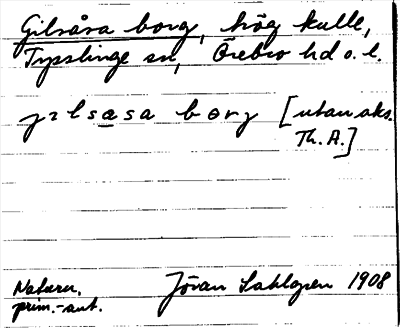 Gilsåsa borg, hög kulle,
Tysslinge sn, Örebro hd o. l.
j ɪ l s a s a b o r j [utan aks.
Th. A.]
Naturn.
prim.-ant.
Jöran Sahlgren 1908